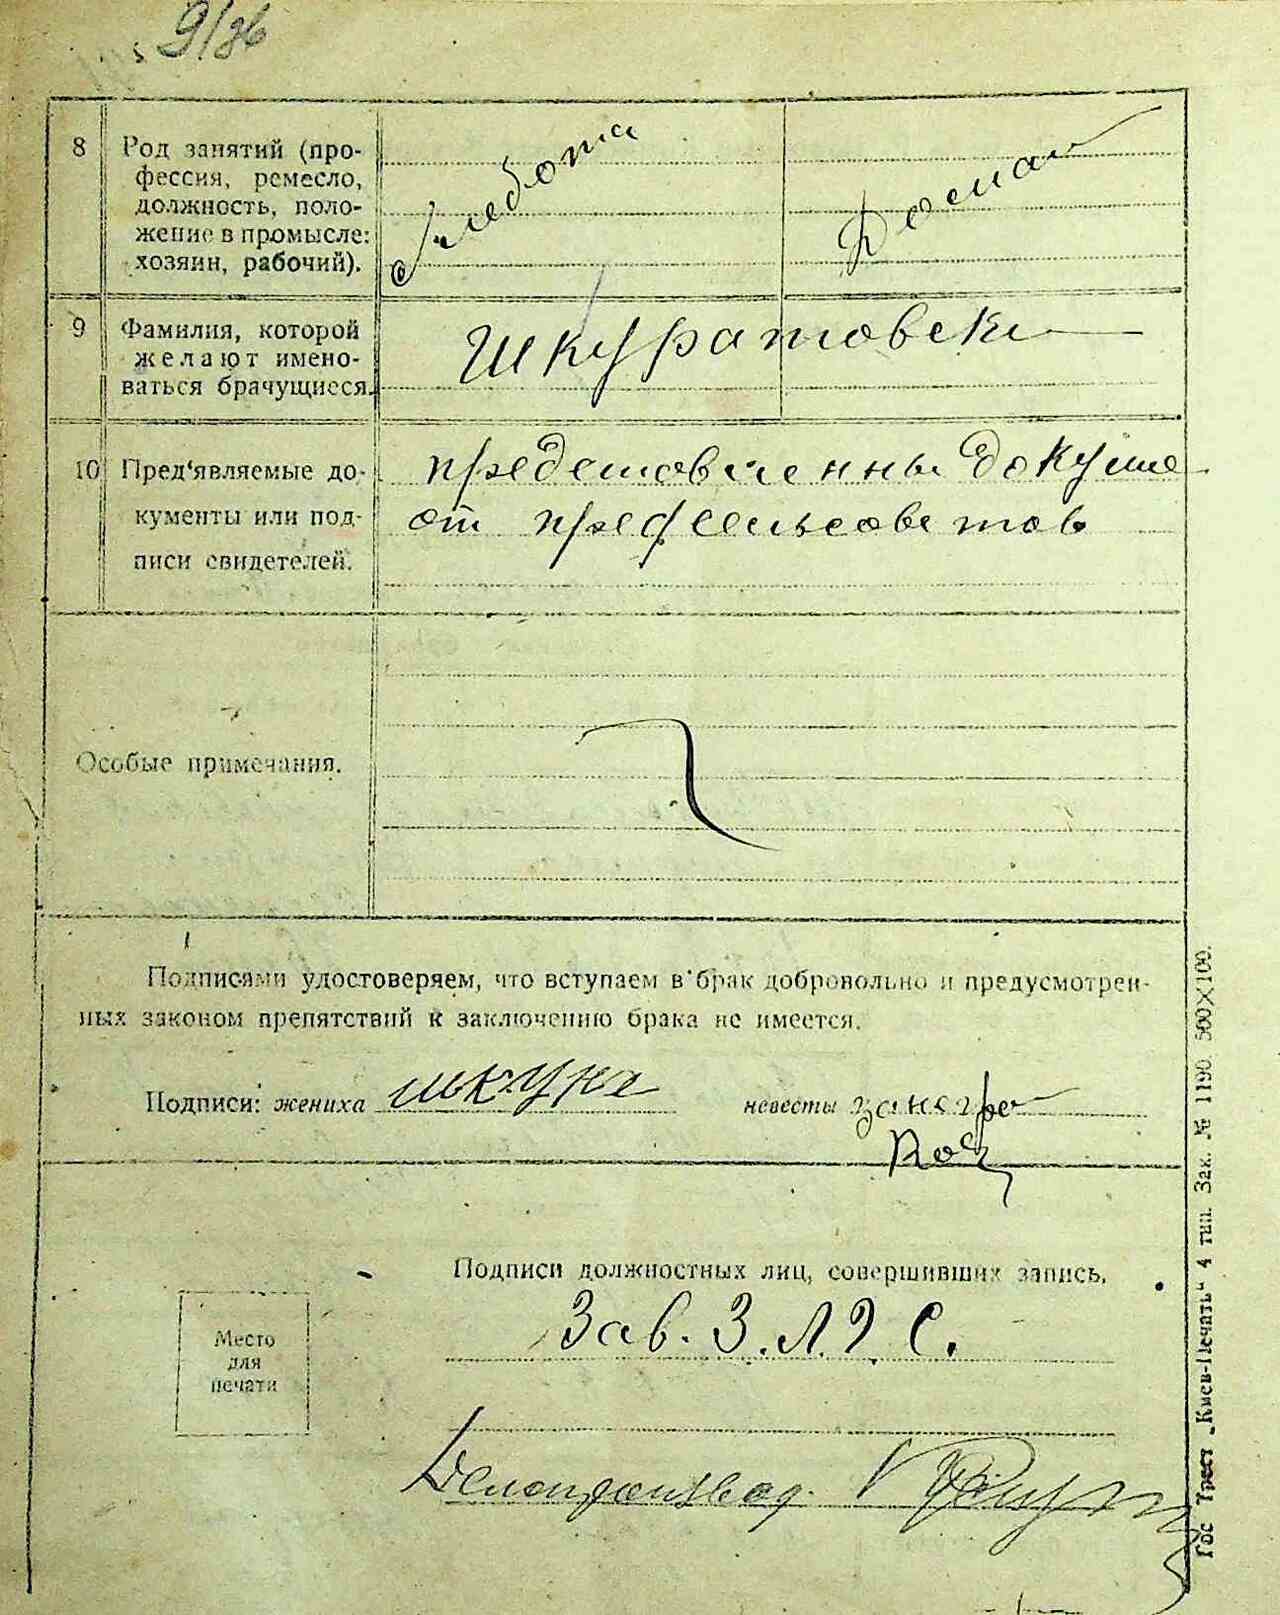 9/36
8 Род занятий (про-
фессия, ремесло,
должность, поло-
жение в промысле:
хозяин, рабочий).
9 Фамилия, которой
желают имено-
ваться брачущиеся.
Шкуратовски
10 Пред'являемые до-
кументы или под-
писи свидетелей.
документ
от
Особые примечания.
Подписями удостоверяем, что вступаем в брак добровольно и предусмотрен-
ных законом препятствий к заключению брака не имеется.
Подписи: жениха шкура невесты
Подписи должностных лиц, совершивших запись.
Зав. З.А.Г.С.
Место
для
печати
Делопроизвод.
Гос Трест „Киев-Печать“ 4 тип. Зак. № 1190. 500×100.